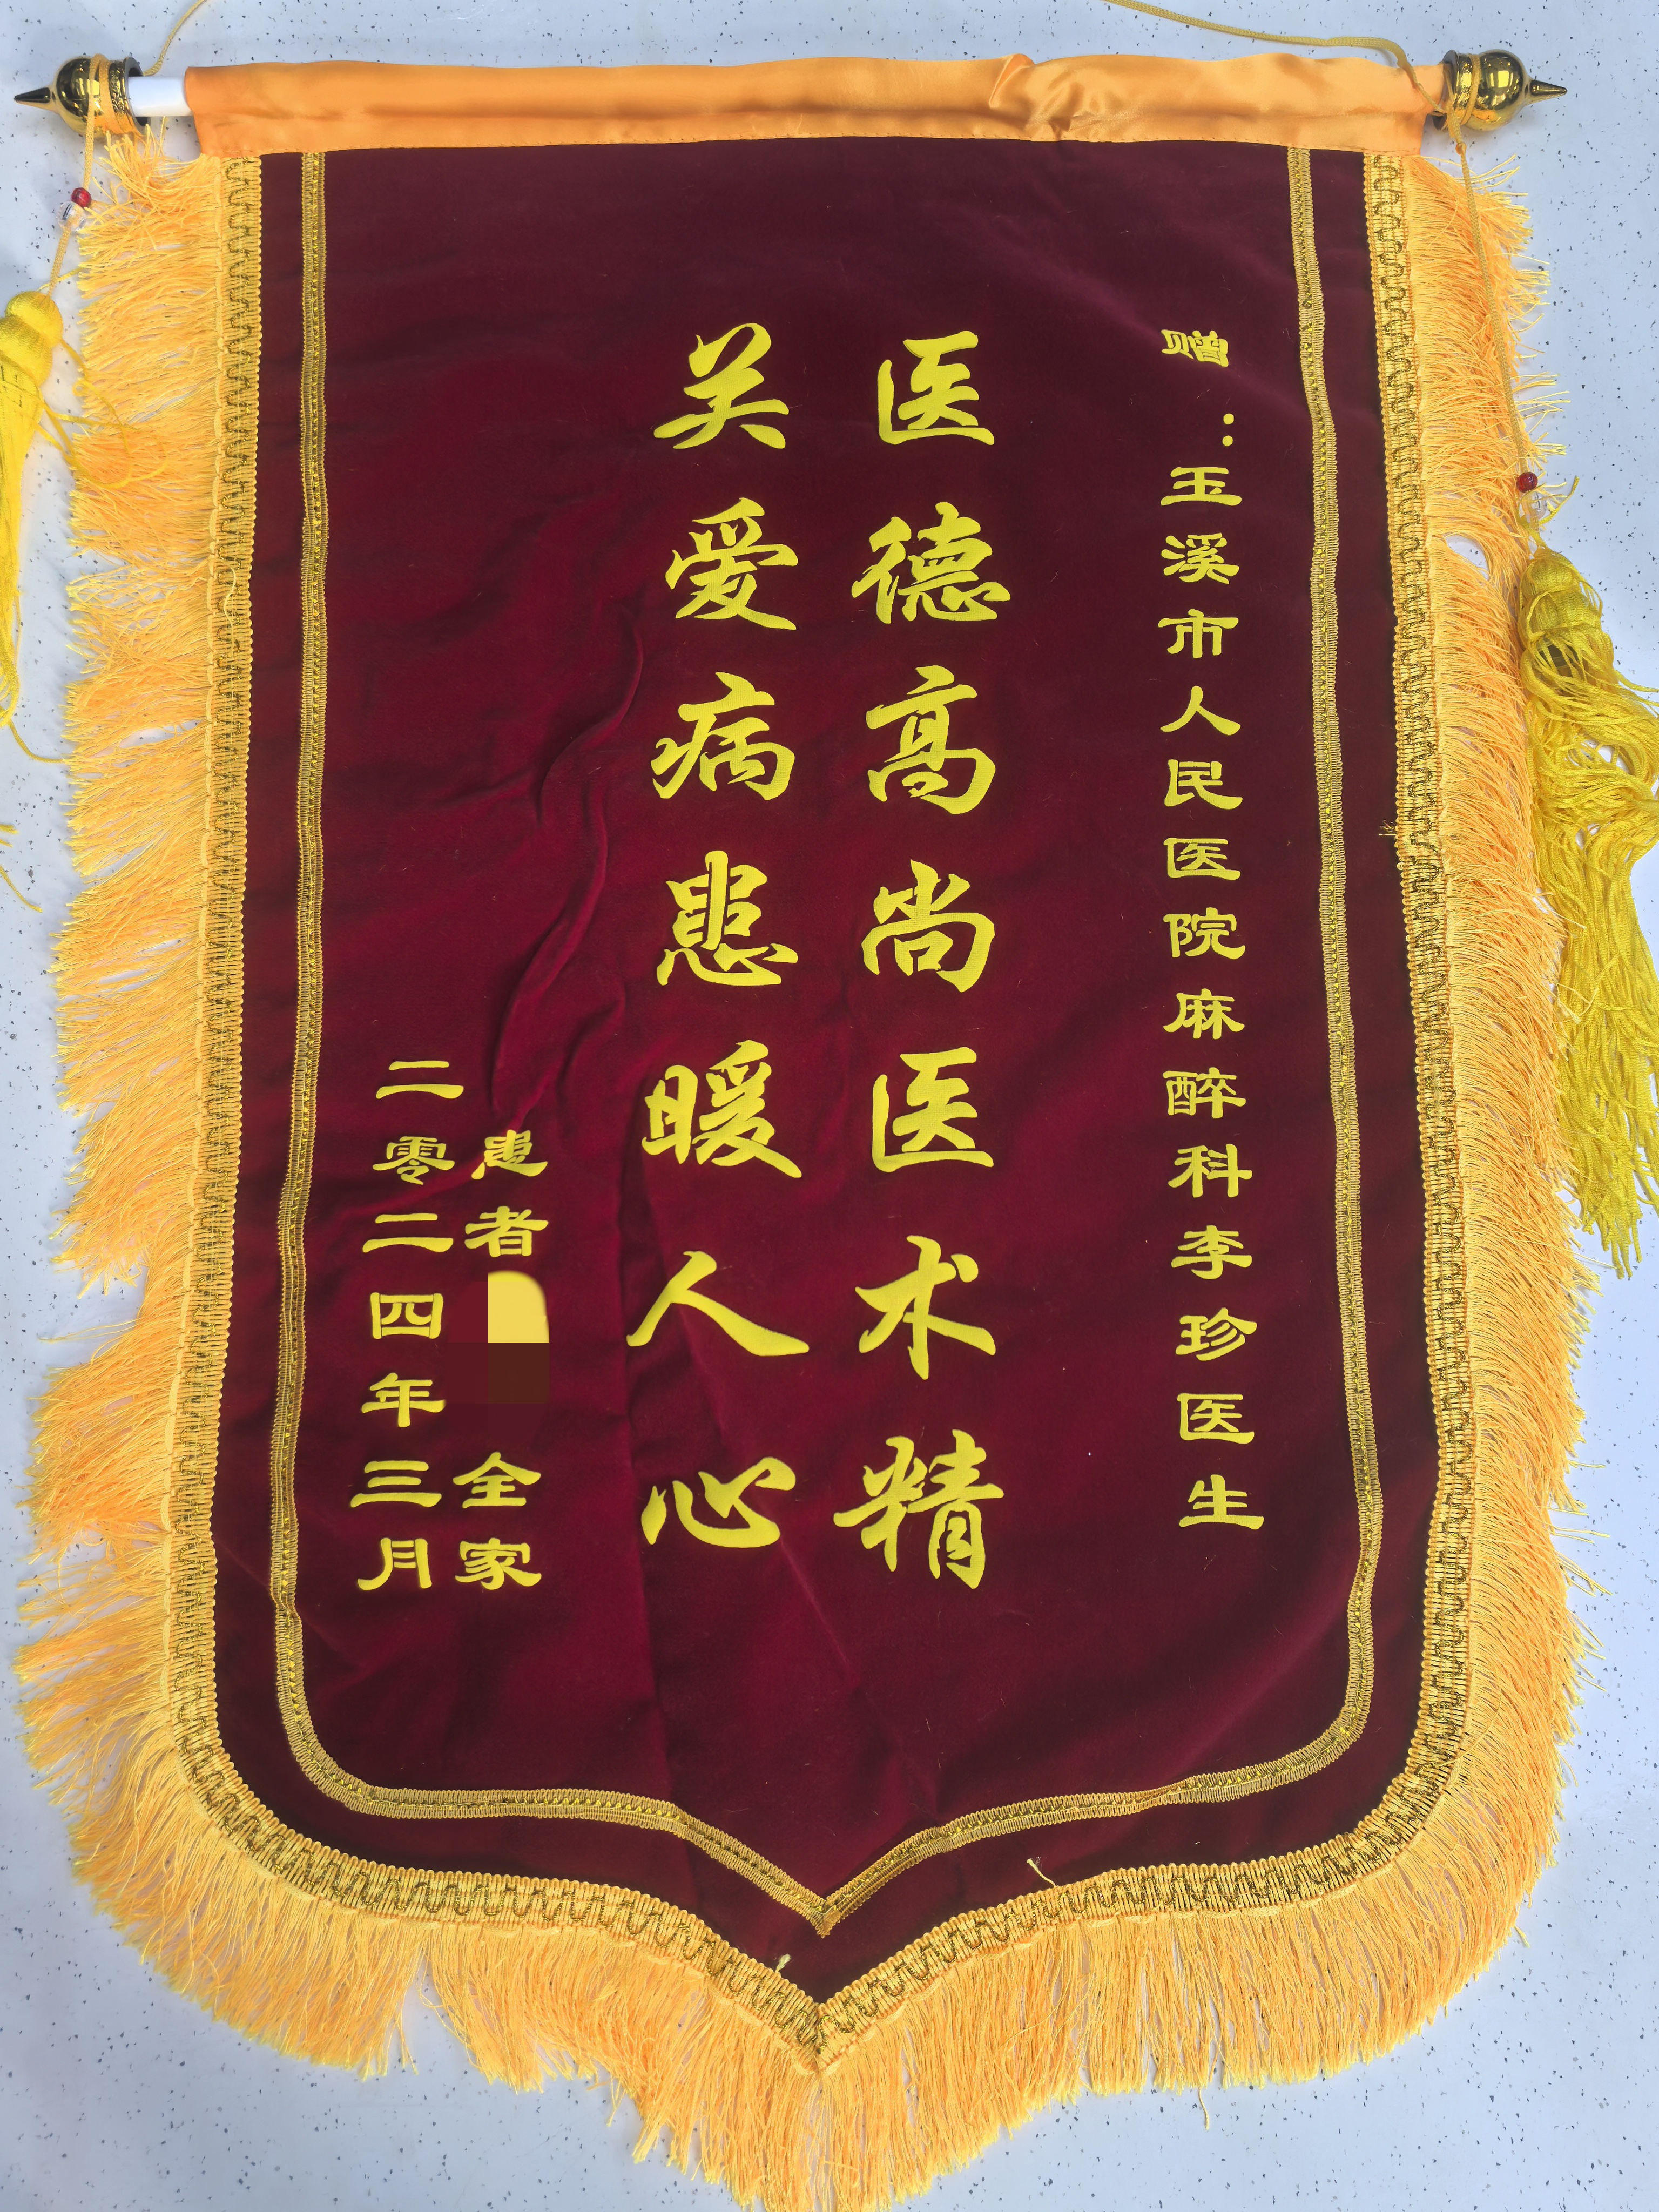 赠：玉溪市人民医院麻醉科李珍医生
医德高尚医术精
关爱病患暖人心
患者
全家
二零二四年三月